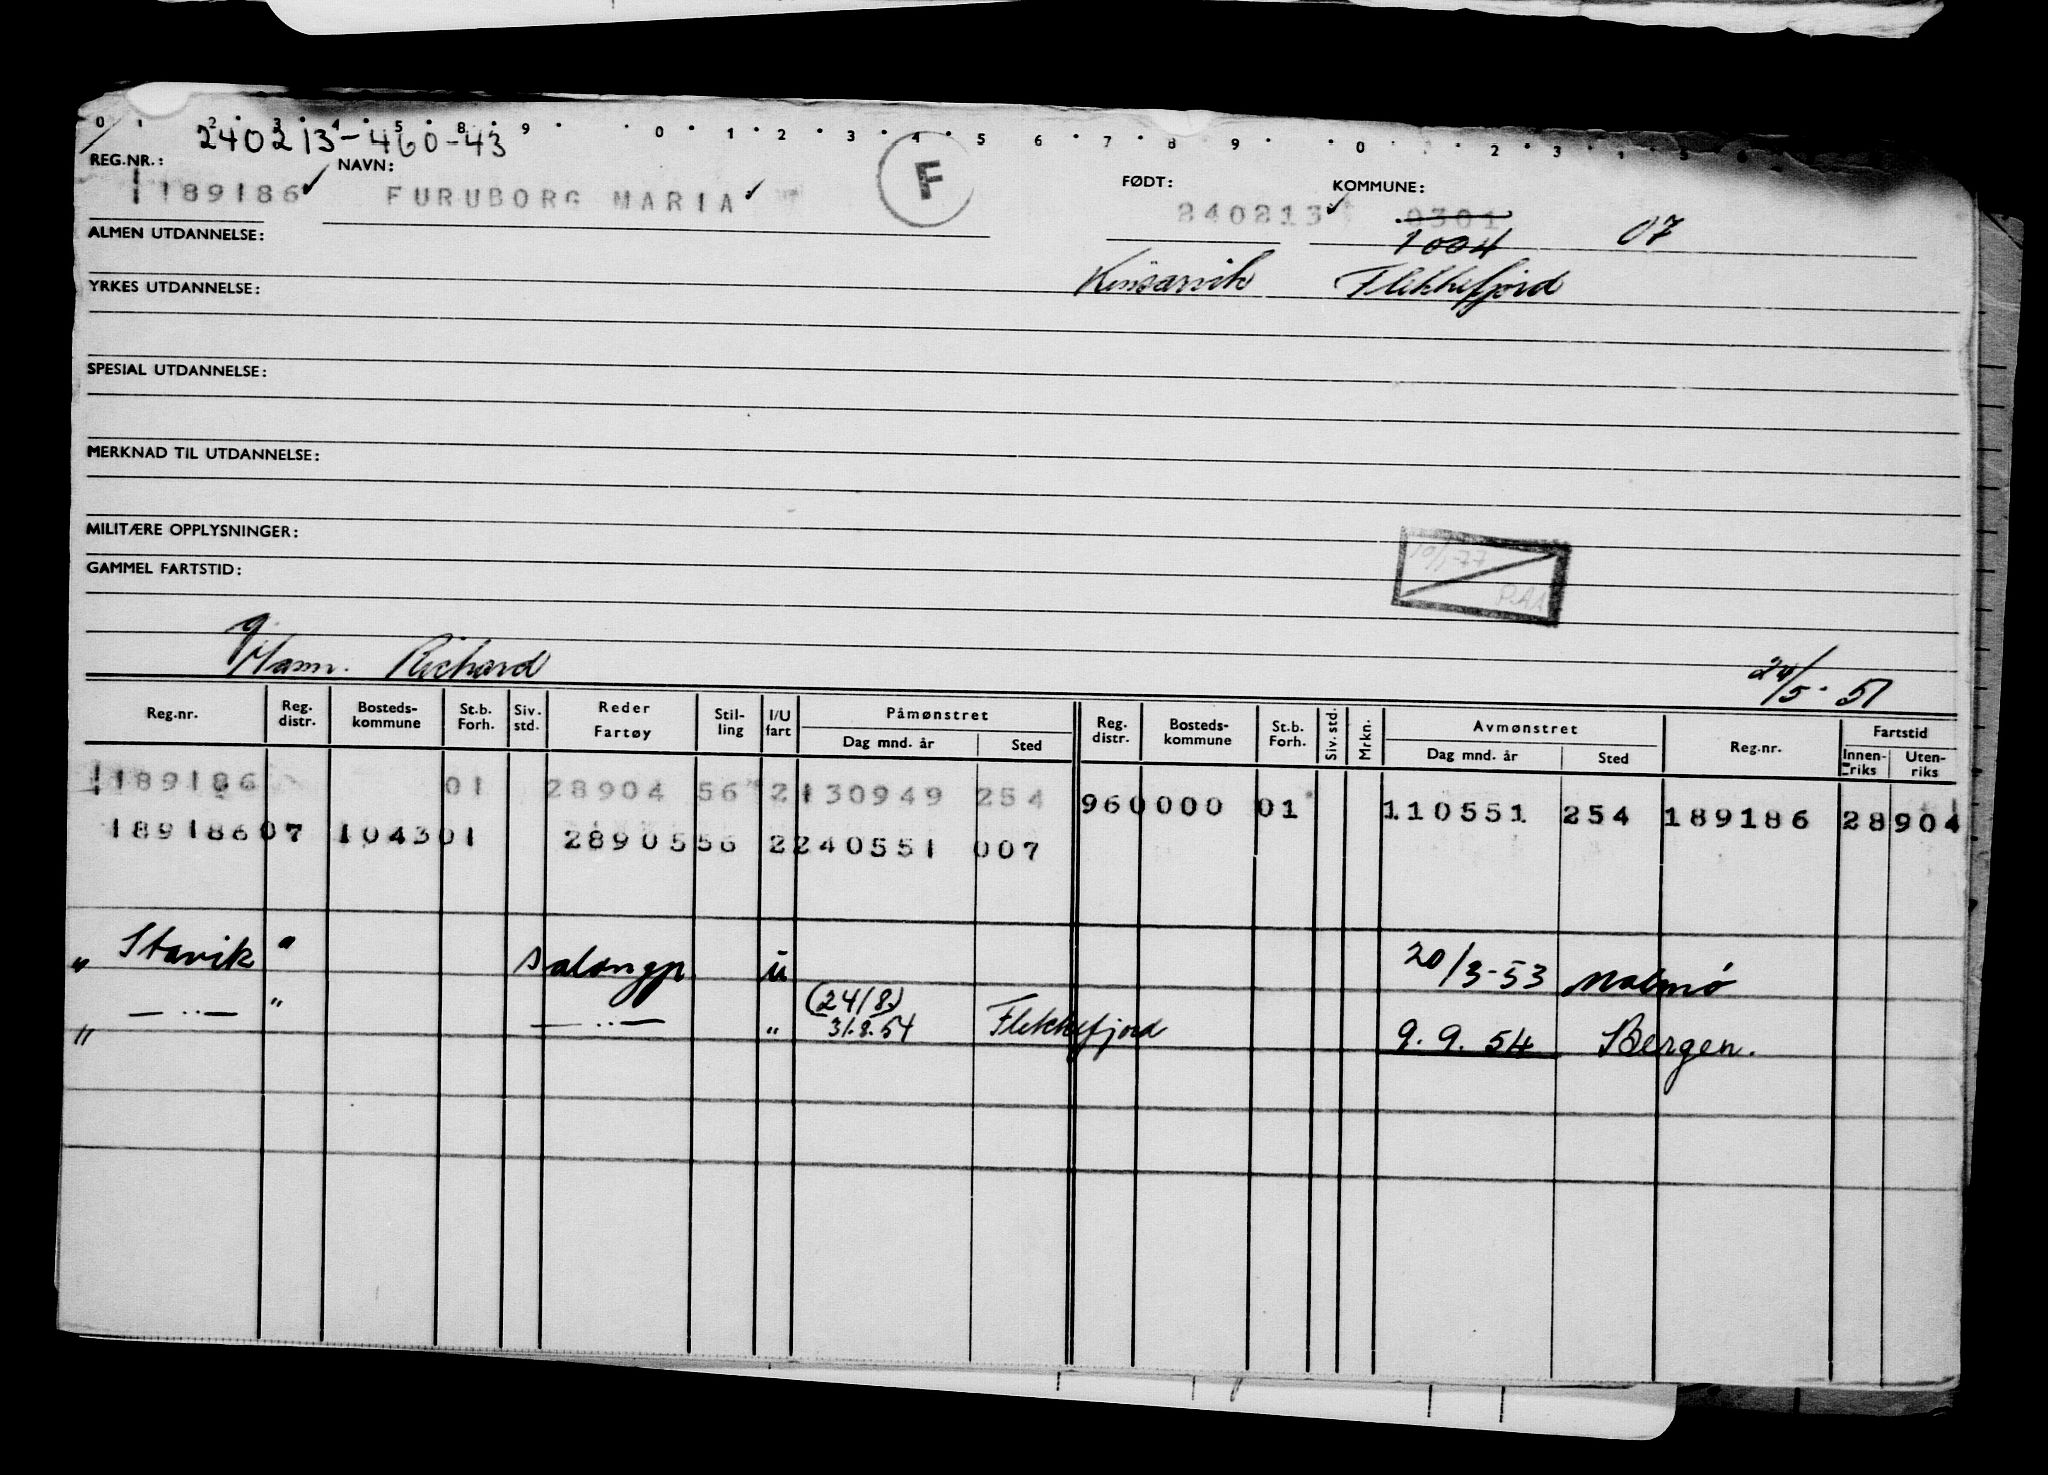 0 1 2 3 4 5 8 9 0 1 2 3 4 5 6 7 8 9 0 2 3 4 5
240213-460-43
REG.NR.: NAVN: FØDT: KOMMUNE:
189186 ✓ FURUBORG MARIA ✓ F 240213 ✓ 0301 07
1004
ALMEN UTDANNELSE:
Kinsarvik Flekkefjord
YRKES UTDANNELSE:
SPESIAL UTDANNELSE:
MERKNAD TIL UTDANNELSE:
MILITÆRE OPPLYSNINGER:
10/1-77
GAMMEL FARTSTID:
Richard 24/5-51
Reg.nr. Reg. distr. Bosteds-kommune St.b. Forh. Siv. std. Reder Fartøy Stil-ling I/U fart Påmønstret Dag mnd. år Sted Reg. distr. Bosteds-kommune St.b. Forh. Siv. std. Mrkn. Avmønstret Dag mnd. år Sted Reg.nr. Fartstid Innen-riks Uten-riks
189186 01 28904 56 2 130949 254 960000 01 110551 254 189186 28904
189186 07 1043 01 28905 56 2 240551 007
" Stavik " salongp. u 20/3-53 Malmø
" — " — " — " — " (24/8) 31.8.54 Flekkefjord 9.9.54 Bergen.